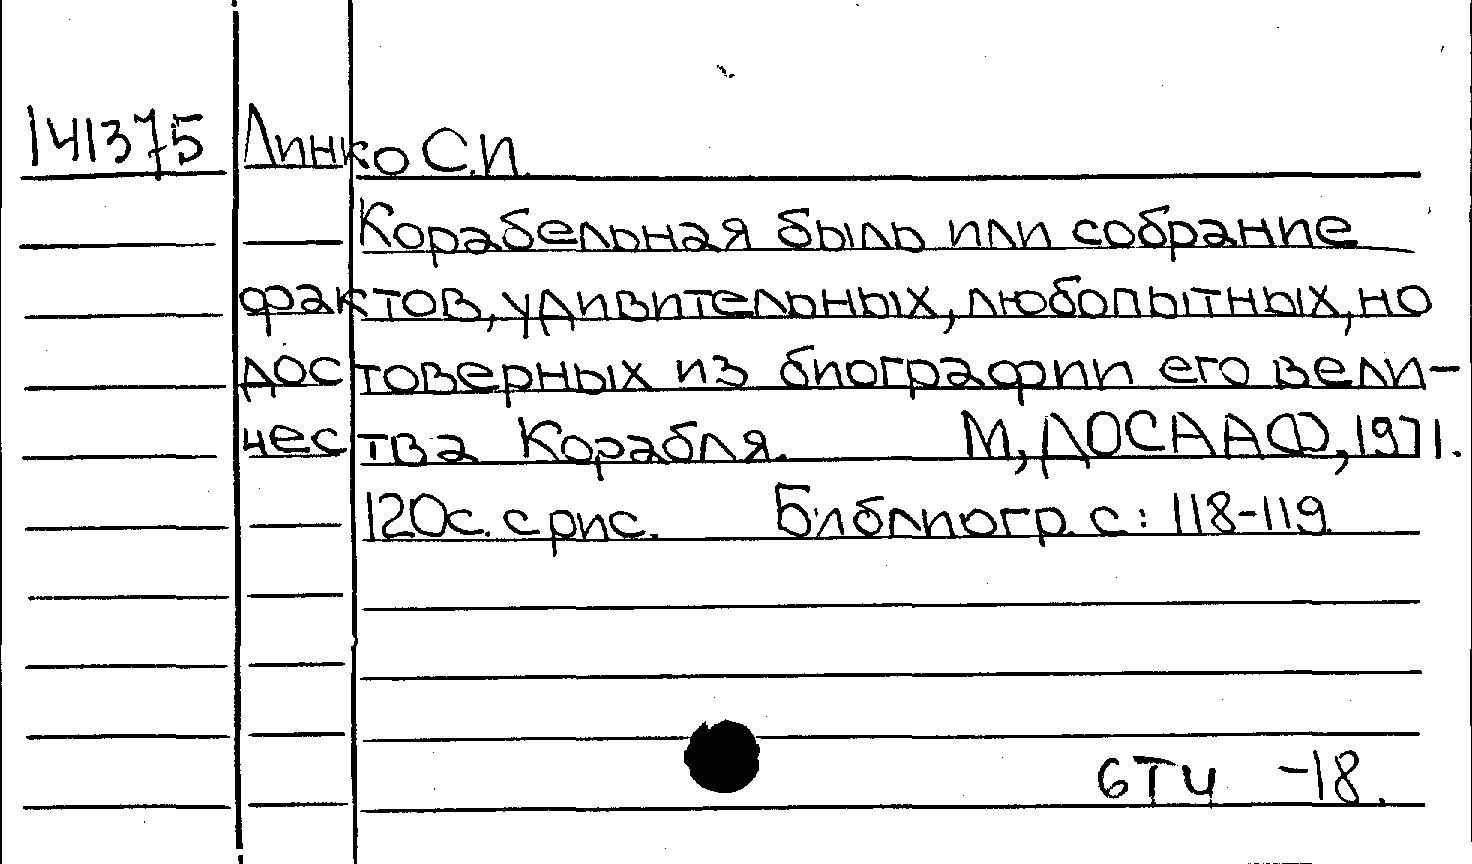 141375 Линко С.И.
Корабельная быль или собрание
фактов, удивительных, любопытных, но
достоверных из биографии его вели-
чества Корабля. М, ДОСААФ, 1971.
120с. с рис. Библиогр. с: 118-119
6Т4 -18.